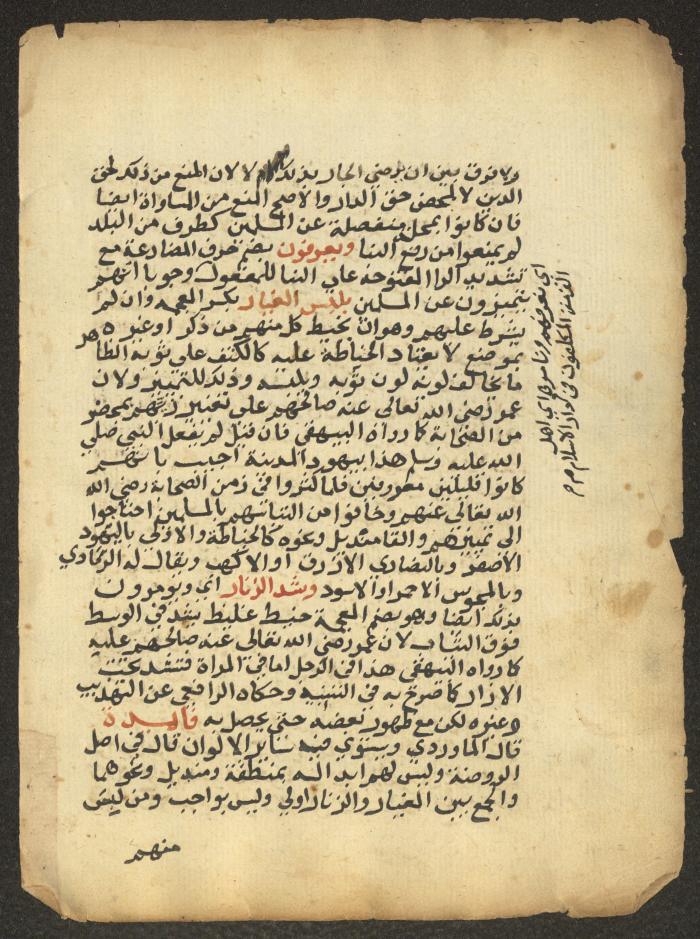 ولا فرق بين ان يرضى الجار بذلك ام لا لان المنع من ذلك لحق
الدين لا لمحض حق الدار والاصح المنع من المساواة ايضا
فان كانوا بمحل منفصلة عن المسلمين كطرف من البلد
لم يمنعوا من رفع البنا ويعرفون بضم حرف المضارعة مع
تشديد الرا المفتوحة على البنا للمفعول وجوبا انهم
يتميزون عن المسلمين بلبس الغيار بكسر المعجمه وان لم
يشرط عليهم وهو ان يخيط كل منهم من ذكر او غيره
بموضع لا يعتاد الخياطة عليه كالكتف على ثوبه الظاهر
ما يخالف لونه لون ثوبه ويلبسه وذلك للتمييز ولان
عمر رضي الله تعالى عنه صالحهم على تغيير زيهم بمحضر
من الصحابة كما رواه البيهقي فان قيل لم يفعل النبي صلي
الله عليه وسلم هذا بيهود المدينة اجيب بانهم
كانوا قليلين معروفين فلما كثروا في زمن الصحابة رضي الله
الله تعالى عنهم وخافوا من التباسهم بالمسلمين احتاجوا
الى تمييزهم والقا منديل ونحوه كالخياطة والاولى باليهود
الاصفر وبالنصارى الازرق او الاكهب ويقال له الرمادي
وبالمجوس الاحمر او الاسود وشد الزنار اي ويومرون
بذلك ايضا وهو بضم المعجمة خيط غليظ يشد في الوسط
فوق الثياب لان عمر رضي الله تعالى عنه صالحهم عليه
كما رواه البيهقي هذا في الرجل اما في المراة فتشد تحت
الازار كما صرح به في التنبيه وحكاه الرافعي عن التهذيب
وغيره لكن مع ظهور بعضه حتى يحصل به فايدة
قال الماوردي ويستوي فيه ساير الالوان قال في اصل
الروضة وليس لهم ابداله بمنطقة ومنديل ونحوهما
والجمع بين الغيار والزنار اولى وليس بواجب ومن ليس
منهم
اي نعرفهم ونامرهم اي اهل
الذمة المكلفون في دار الاسلام م م